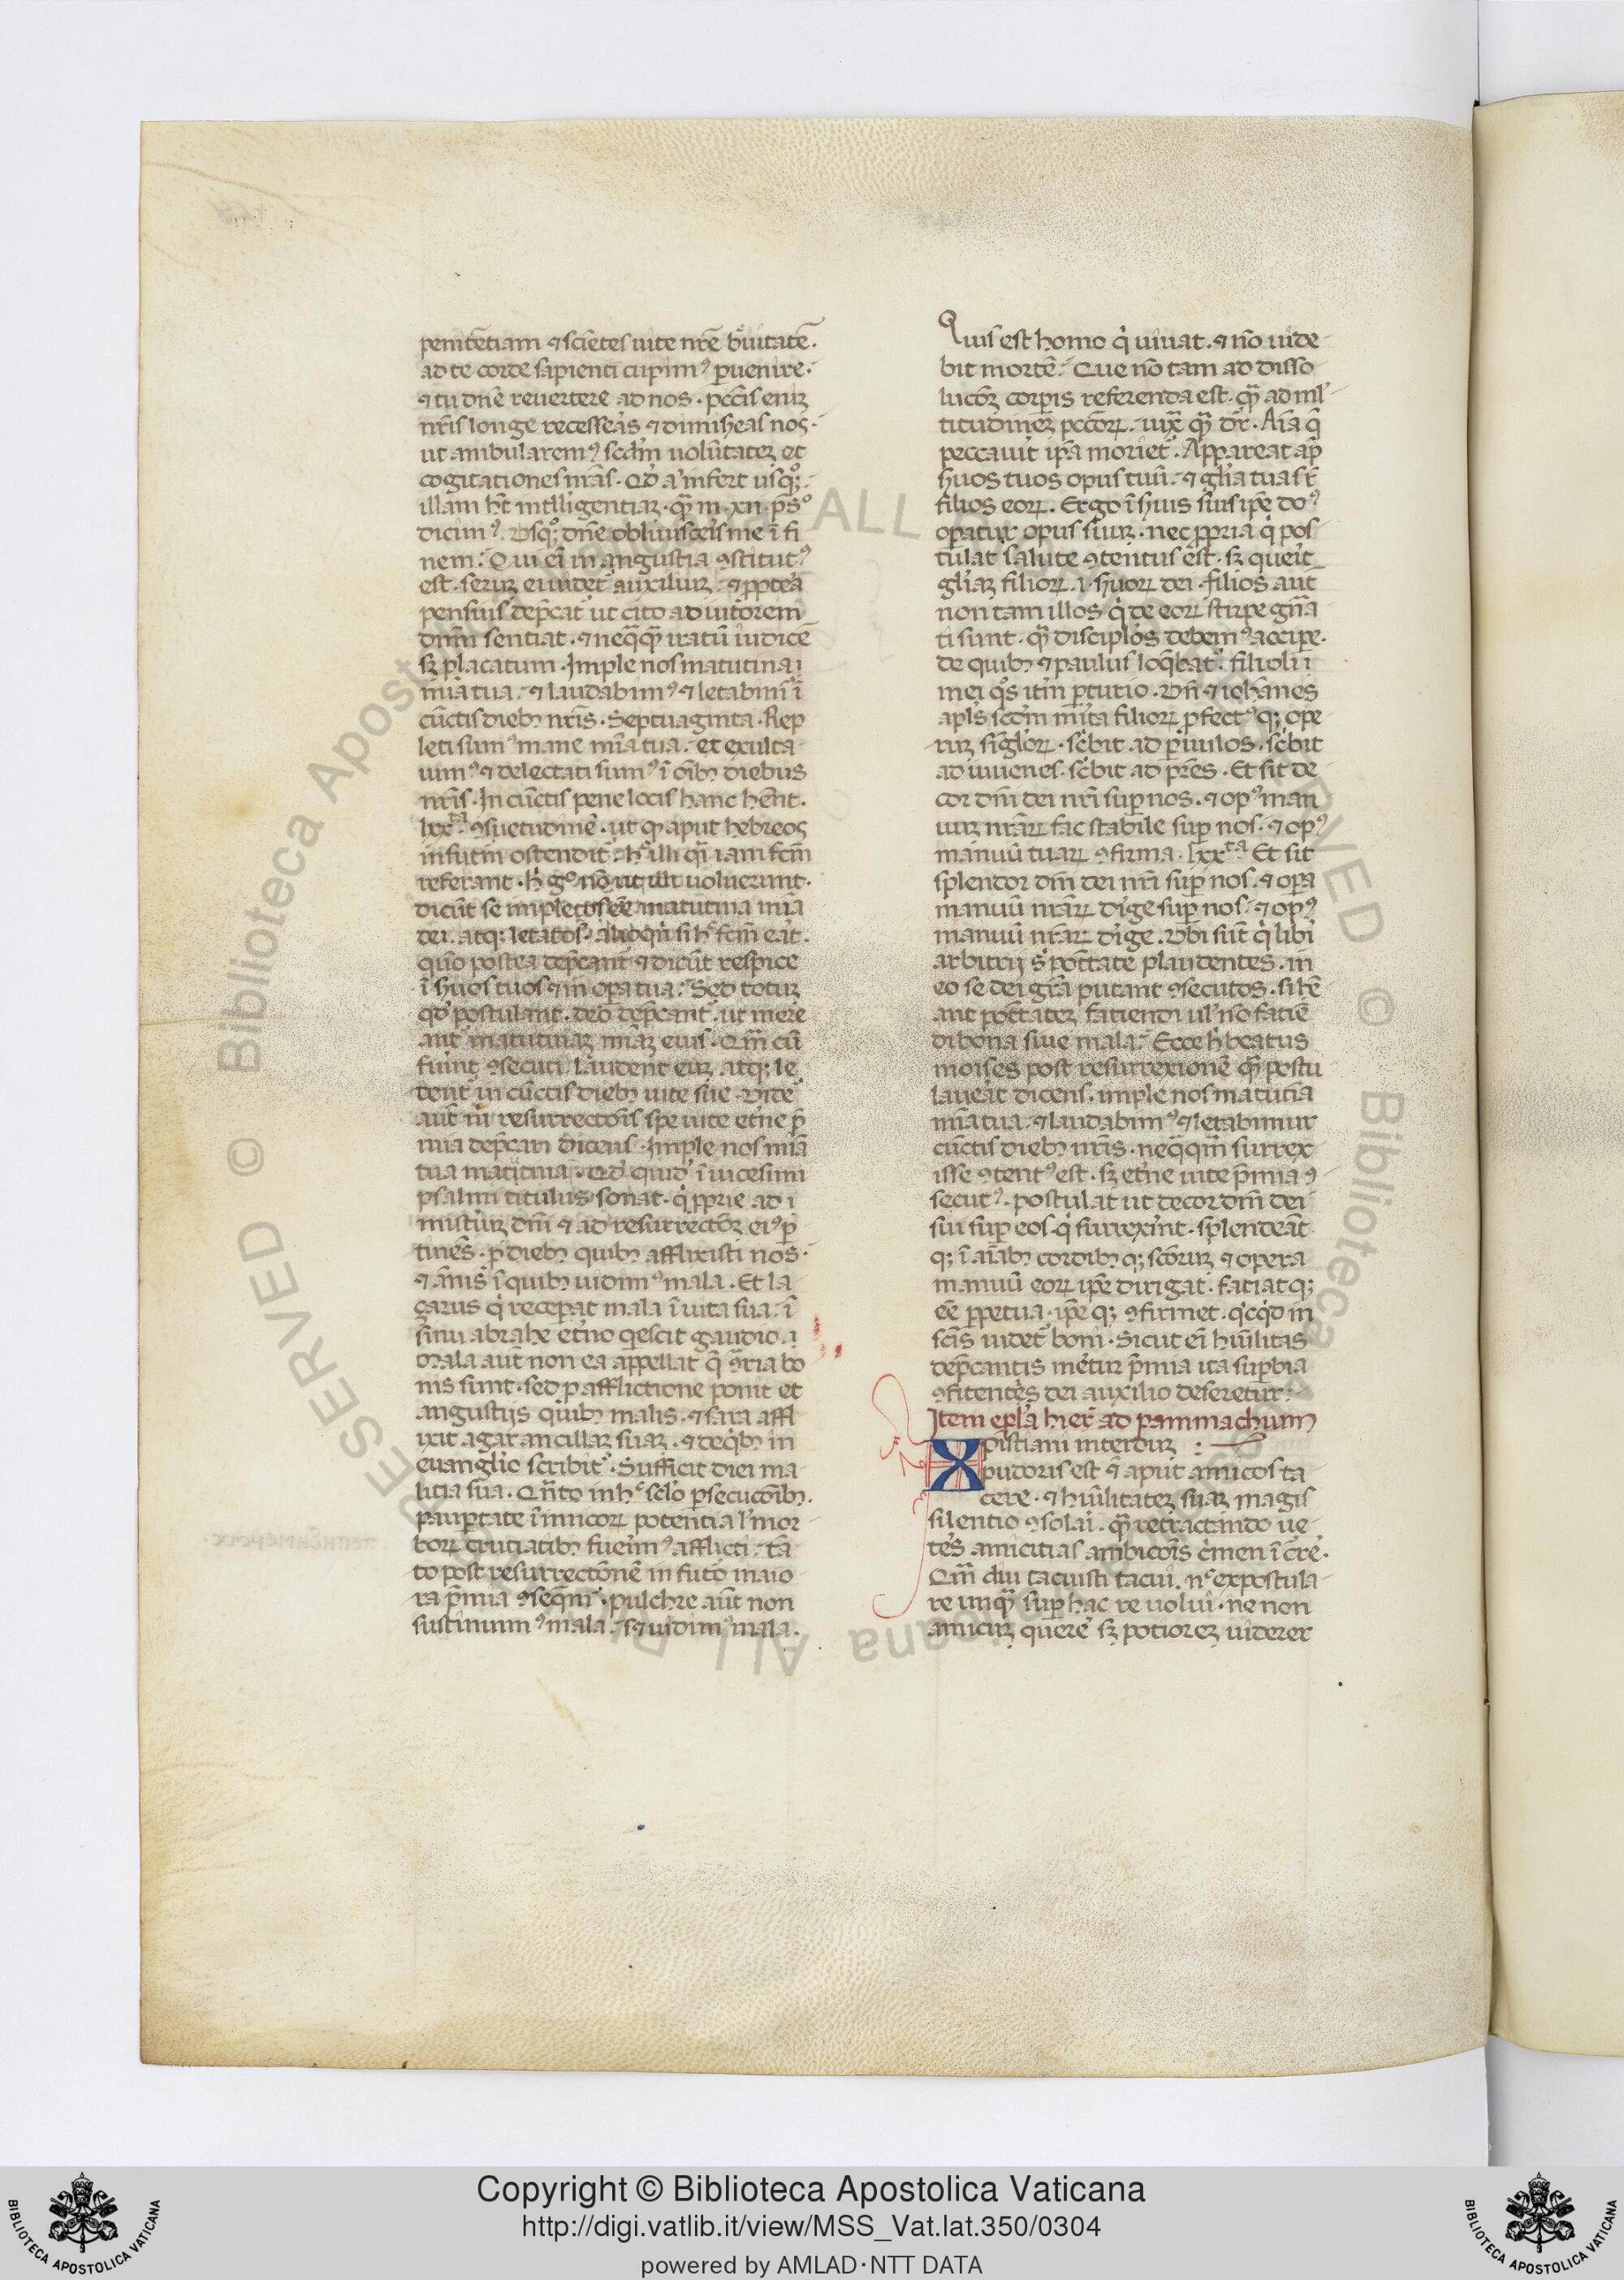 penitẽtiam ⁊ sciẽtes uite nrẽ breuitatẽ.
ad te corde sapienti cupimꝰ peruenire.
⁊ tu dnẽ reuertere ad nos. pccĩs eniꝫ
nrĩs longe recesseras ⁊ dimiseas nos.
ut ambularemꝰ scdm uolũtateꝫ et
cogitationes nrãs. Qd aũ infert usqꝫ.
illam hẽt intelligentiaꝫ. qꝫ in .xii. psº
dicimꝰ. Vsqꝫ dñe obliuisceris me ĩ fi
nem. Qui eĩ in angustia ꝯstitutꝰ
est. seruꝫ ei uidet auxiliuꝫ. ⁊ propterea
pensius deprecat ut cito adiutorem
dñm sentiat. ⁊ neqꝗꝫ iratũ iudicẽ
sꝫ placatum. Imple nos matutina
mĩa tua. ⁊ laudabimꝰ ⁊ letabimĩ ĩ
cũctis diebꝫ nrĩs. Septuaginta. Rep
leti sumꝰ mane mĩa tua. et exulta
uimꝰ ⁊ delectati sumꝰ ĩ oĩbꝫ diebus
nrĩs. In cũctis pene locis hanc hẽnt.
lxx.ta ꝯsuetudinẽ. ut qꝫ aput hebreos
in futm̃ ostendit. hͨ illi qꝫ iam fcm̃
referant. hͨ gº nõ ut illi uoluerunt.
dicũt se impletos eẽ matutina mĩa
dei. atqꝫ letatos. alioqꝫ si hͨ fcm̃ erat.
quo postea deprecant ⁊ dicũt respice
ĩ suos tuos ⁊ in opera tua. Sed totuꝫ
qd postulant. deo deprecant. ut mere
ant matutinaꝫ mĩaꝫ eius. Qm̃ cũ
fuĩnt ꝯsecuti laudent euꝫ. atqꝫ le
tent in cũctis diebꝫ uite sue. Videt
aũt in resurrectõis spe uite etñe p̃
mia deprecari dicens. Imple nos mĩa
tua matutina. Qd quid ĩ uicesimi
psalmi titulus sonat. q proprie ad
misteriuꝫ dñi ⁊ ad resurrectõꝫ eiꝰ p
tinẽs. p diebꝫ quibꝫ afflixisti nos.
⁊ ãnis ĩ quibꝫ uidimꝰ mala. Et la
çarus q̇ receperat mala ĩ uita sua. ĩ
sinu abrahe etño qescit gaudio.
mala aũt non ea appellat q̃ ꝯtria bo
nis sunt. sed p afflictione ponit et
angustijs quibꝫ malis. ⁊ sara affl
ixit agar ancillaꝫ suaꝫ. ⁊ de qbꝫ in
euanglio scribit. Sufficit diei ma
litia sua. Qñto in hͨ sclo persecucõibꝫ.
paupertate ĩimicoꝝ potentia l' mor
boꝝ cruciatibꝫ fuerimꝰ afflicti. tã
to post resurrectõnẽ in futo maio
ra p̃mia ꝯseqm̃. pulchre aũt non
sustinuimꝰ mala. sꝫ uidimꝰ mala.
Quis est homo q̇ uiuat. ⁊ nõ uide
bit mortẽ. Que nõ tam ad disso
lucõꝫ corporis referenda est. qꝫ ad ml'
titudineꝫ pccõꝝ. iuxͣ qꝫ dr̃. Aĩa q̃
peccauit ipa moriet. Appareat ap
suos tuos opus tuũ. ⁊ glĩa tua sr̃
filios eoꝝ. Ergo ĩ suis suis ipẽ doꝰ
operatur opus suuꝫ. nec propria q̇ pos
tulat salute ꝯtentus est. sꝫ querit
gliaꝫ filioꝝ. i. suoꝝ dei. filios aut
non tam illos q̇ de eoꝝ stirpe gña
ti sunt. qꝫ disciplos debemꝰ accipe.
de quibꝫ ⁊ paulus loqbat. filioli
mei qºs itm̃ perturio. Vñ ⁊ iohãnes
aplũs scdm mĩta filioꝝ perfectꝰ qꝫ ope
ruꝫ singloꝝ. scbit ad paruulos. scbit
ad iuuenes. scbit ad prẽs. Et sit de
cor dñi dei nrĩ super nos. ⁊ opꝰ man
uuꝫ nrãꝝ fac stabile super nos. ⁊ opꝰ
manuũ tuaꝝ ꝯfirma. lxx.ta Et sit
splendor dñi dei nrĩ super nos. ⁊ opera
manuũ nrãꝝ dige super nos. ⁊ opꝰ
manuũ nrãꝝ dige. Vbi sũt q̇ libi
arbitrij s potẽtate plaudentes. in
eo se dei grã putant ꝯsecutos. si hẽ
ant potẽtateꝫ fatiendi ul' nõ fatiẽ
di bona siue mala. Ecce hͨ beatus
moises post resurrexionẽ qꝫ postu
lauerat dicens. imple nos matutia
mĩa tua. ⁊ laudabimꝰ ⁊ letabimur
cũctis diebꝫ nrĩs. neqꝗm̃ surrex
isse ꝯtentꝰ est. sꝫ etñe uite p̃mia ꝯ
secutꝰ. postulat ut decor dñi dei
sui super eos q̇ surrexĩnt. splendeat
qꝫ ĩ aĩabꝫ cordibꝫ qꝫ scõruꝫ ⁊ opera
manuũ eoꝝ ipẽ dirigat. fatiat qꝫ
eẽ perpetua. ipẽ qꝫ ꝯfirmet. qcqd in
scĩs uidet boni. Sicut eĩ hũilitas
deprecantis meretur p̃mia ita superbia
ꝯfitentes dei auxilio deseretur.
Item epla hier ad pammachum
Xpistiani interduꝫ
pudoris est ⁊ aput amicos ta
cere. ⁊ hũilitateꝫ suaꝫ magis
silentio ꝯsolari. qꝫ retractando ue
teres amicitias ambicõis crimen ĩcrrẽ.
Qm̃ diu tacuisti tacui. nͨ expostula
re unqꝫ super hac re uolui. ne non
amicuꝫ querere sꝫ potioreꝫ uiderer
Copyright © Biblioteca Apostolica Vaticana
http://digi.vatlib.it/view/MSS_Vat.lat.350/0304
powered by AMLAD·NTT DATA
BIBLIOTECA APOSTOLICA VATICANA
BIBLIOTECA APOSTOLICA VATICANA